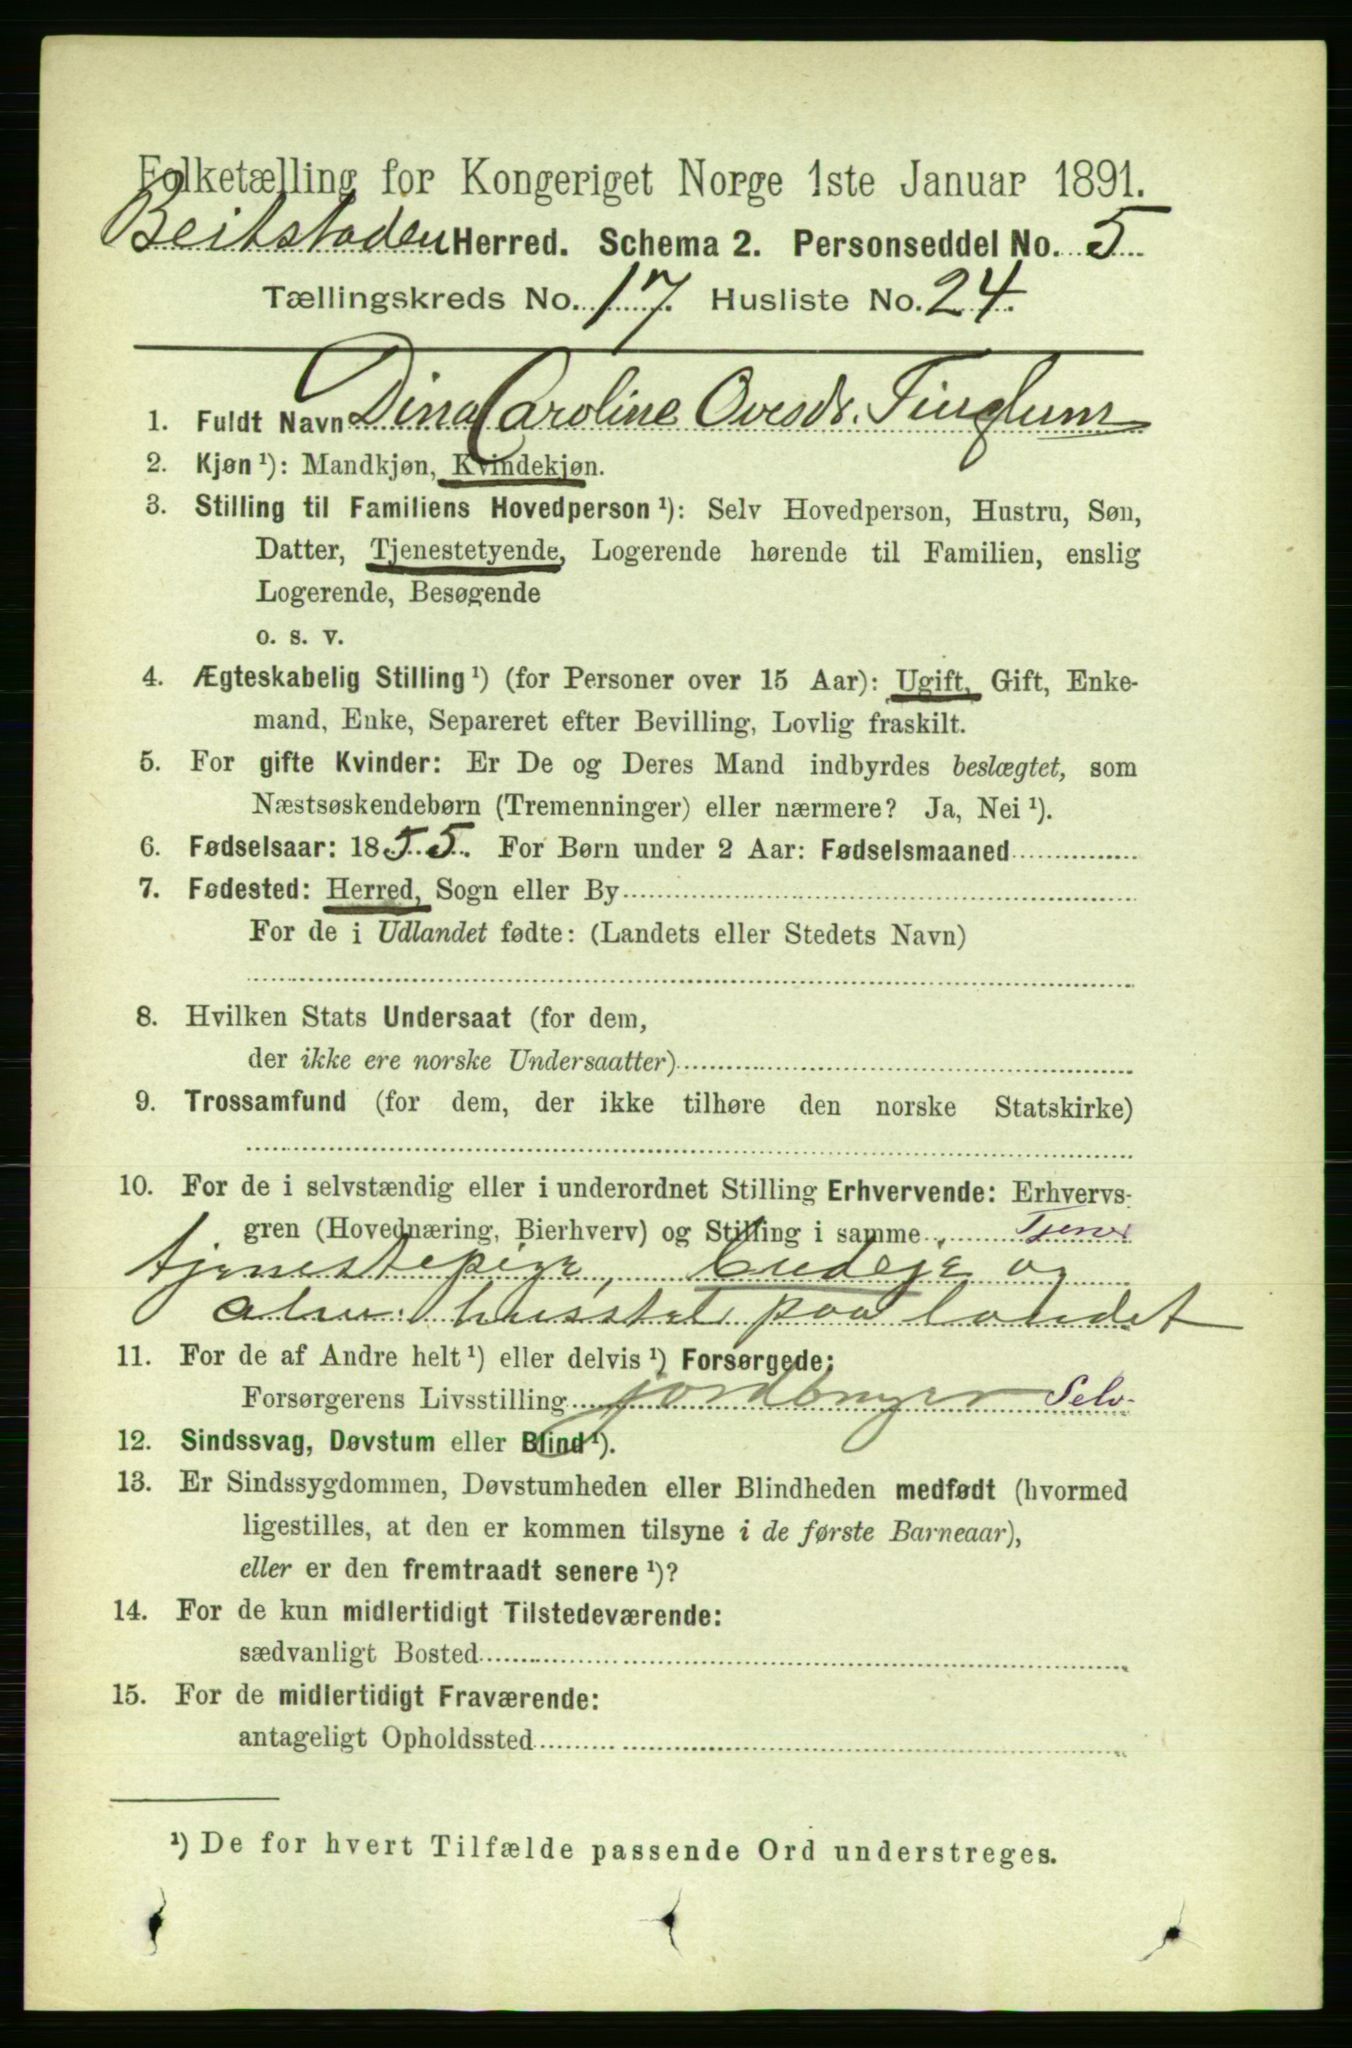 Folketælling for Kongeriget Norge 1ste Januar 1891.
Beitstaden Herred. Schema 2. Personseddel No. 5
Tællingskreds No. 17 Husliste No. 24
1. Fuldt Navn Dina Caroline Ovesdr. Tinglum
2. Kjøn ¹): Mandkjøn, Kvindekjøn.
3. Stilling til Familiens Hovedperson ¹): Selv Hovedperson, Hustru, Søn,
Datter, Tjenestetyende, Logerende hørende til Familien, enslig
Logerende, Besøgende
o. s. v.
4. Ægteskabelig Stilling ¹) (for Personer over 15 Aar): Ugift, Gift, Enke-
mand, Enke, Separeret efter Bevilling, Lovlig fraskilt.
5. For gifte Kvinder: Er De og Deres Mand indbyrdes beslægtet, som
Næstsøskendebørn (Tremenninger) eller nærmere? Ja, Nei ¹).
6. Fødselsaar: 1855. For Børn under 2 Aar: Fødselsmaaned
7. Fødested: Herred, Sogn eller By
For de i Udlandet fødte: (Landets eller Stedets Navn)
8. Hvilken Stats Undersaat (for dem,
der ikke ere norske Undersaatter)
9. Trossamfund (for dem, der ikke tilhøre den norske Statskirke)
10. For de i selvstændig eller i underordnet Stilling Erhvervende: Erhvervs-
gren (Hovednæring, Bierhverv) og Stilling i samme
tjenestepige, budeje og
husstel paa landet
11. For de af Andre helt ¹) eller delvis ¹) Forsørgede:
Forsørgerens Livsstilling jordbruger Selv-
12. Sindssvag, Døvstum eller Blind ¹).
13. Er Sindssygdommen, Døvstumheden eller Blindheden medfødt (hvormed
ligestilles, at den er kommen tilsyne i de første Barneaar),
eller er den fremtraadt senere ¹)?
14. For de kun midlertidigt Tilstedeværende:
sædvanligt Bosted
15. For de midlertidigt Fraværende:
antageligt Opholdssted
¹) De for hvert Tilfælde passende Ord understreges.